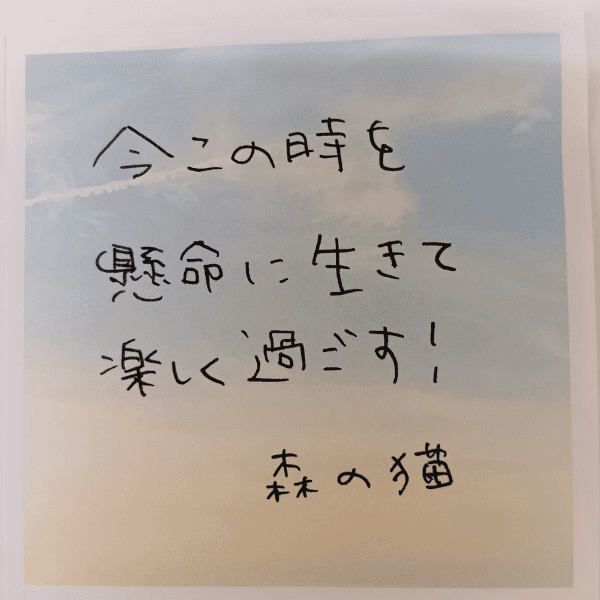 今この時を
懸命に生きて
楽しく過ごす!
森の猫